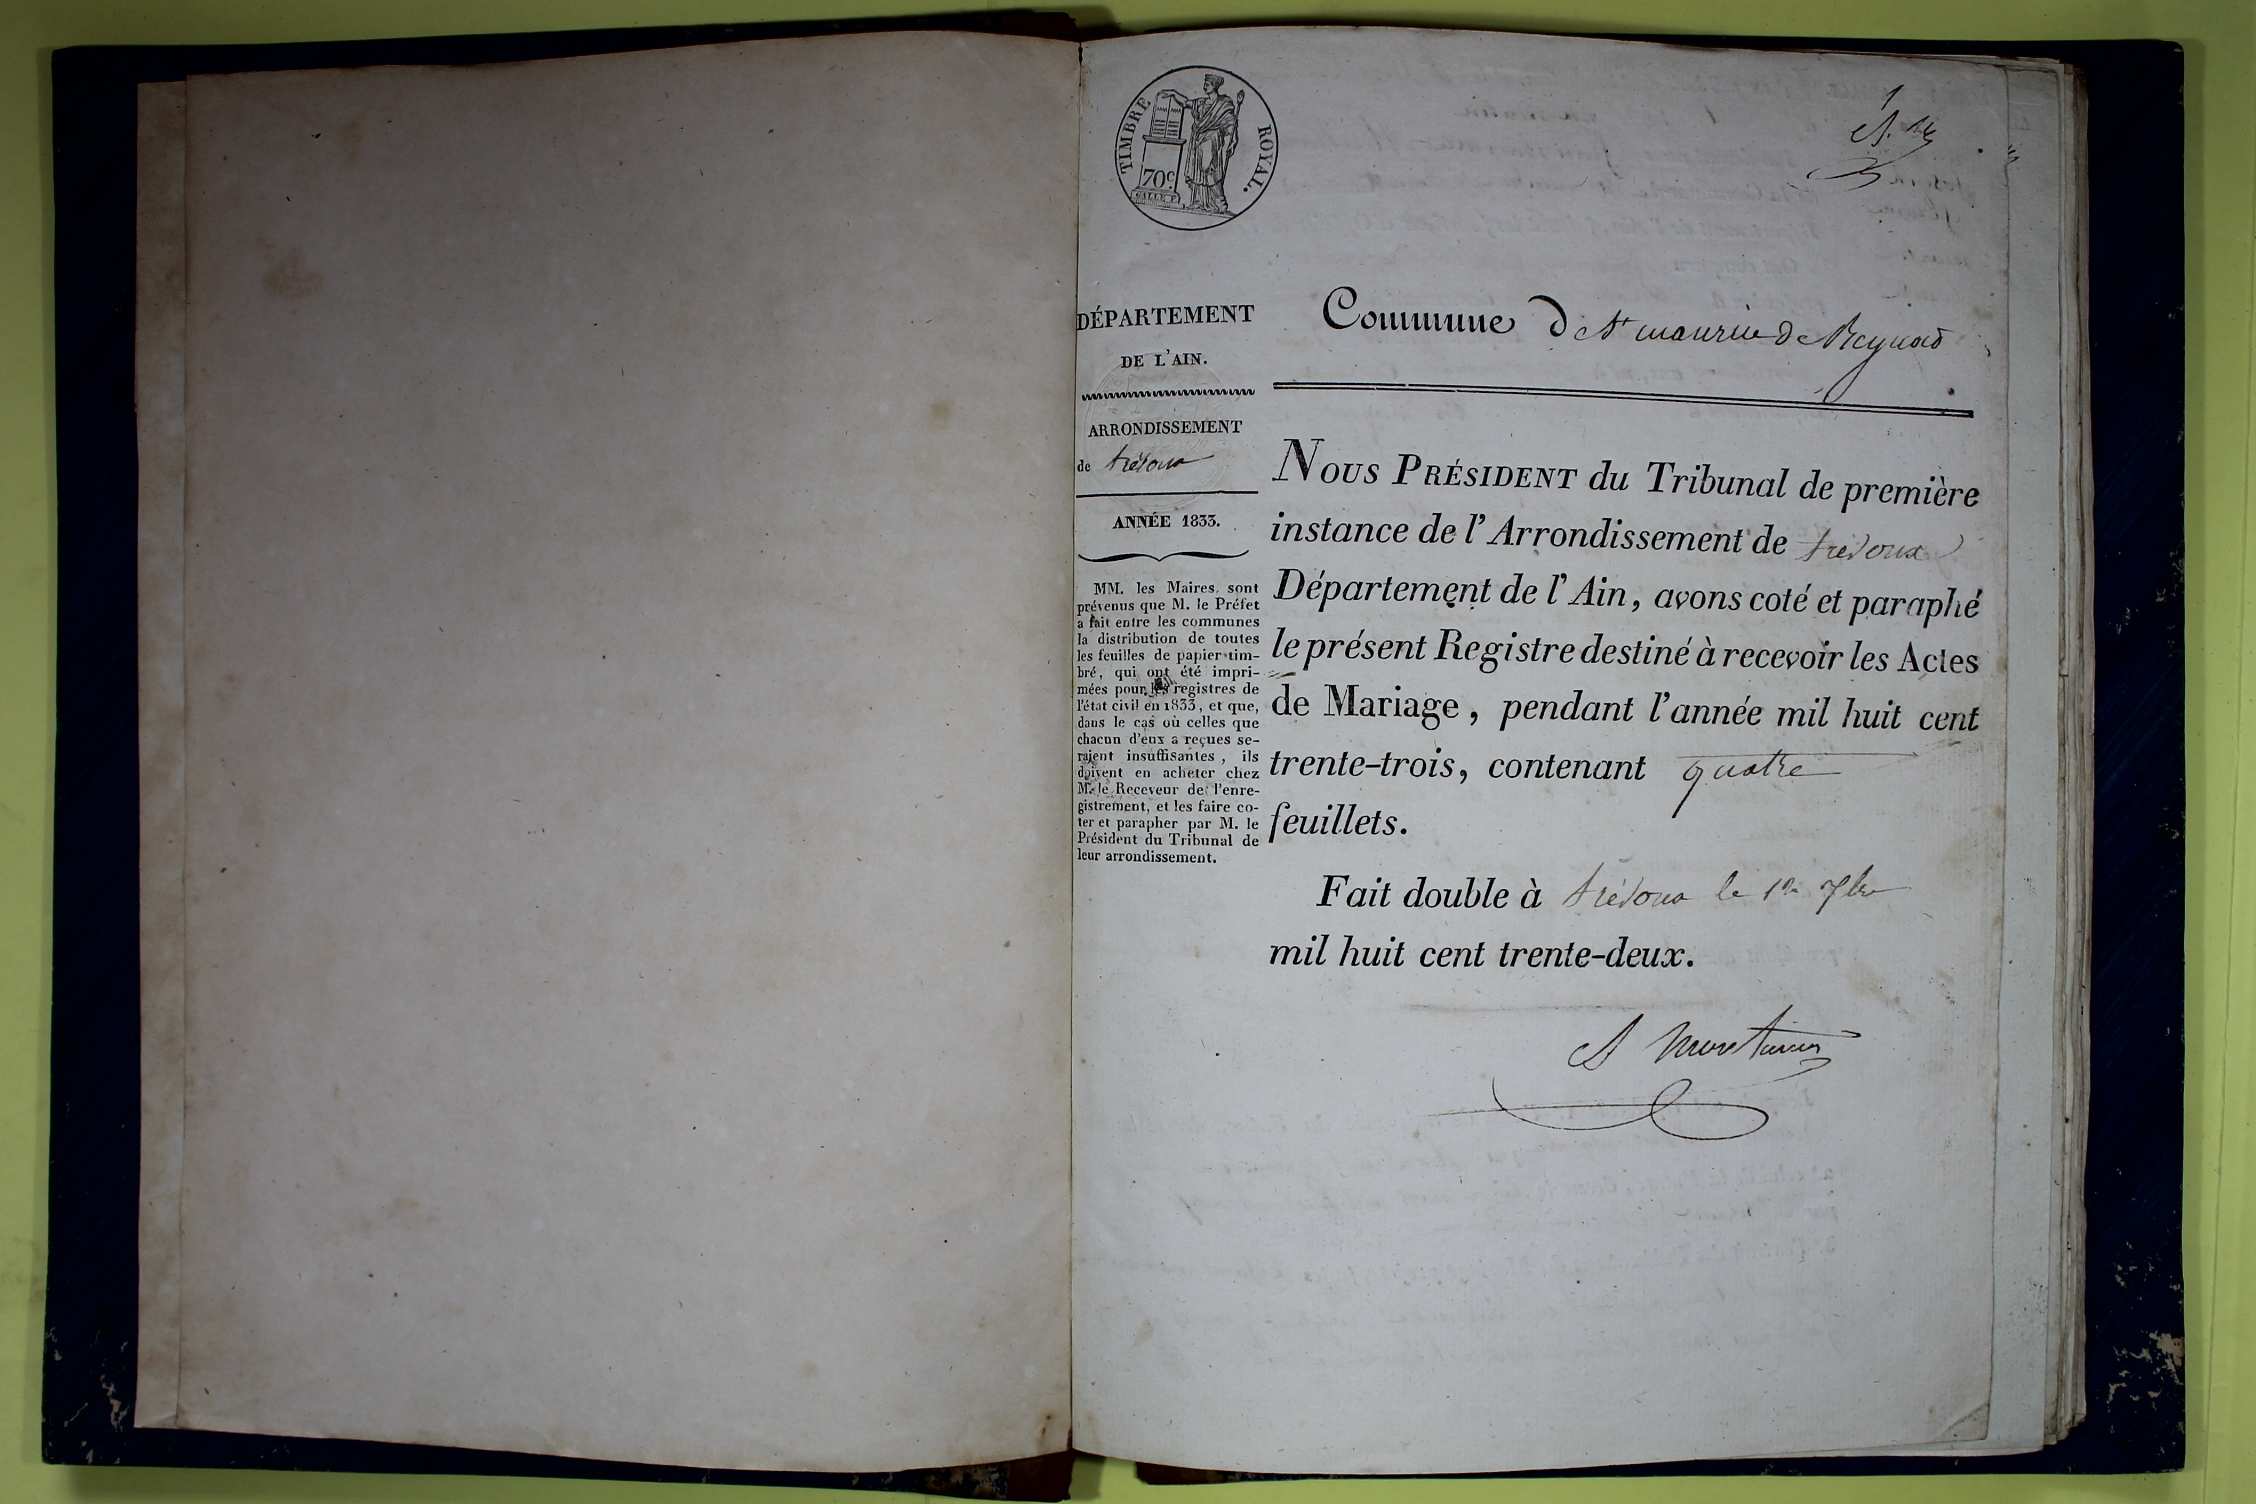 TIMBRE ROYAL.
70c
1
DÉPARTEMENT
DE L'AIN.
ARRONDISSEMENT
de trévoux
ANNÉE 1833.
MM. les Maires sont
prévenus que M. le Préfet
a fait entre les communes
la distribution de toutes
les feuilles de papier tim-
bré, qui ont été impri-
mées pour les registres de
l'état civil en 1833, et que,
dans le cas où celles que
chacun d'eux a reçues se-
raient insuffisantes, ils
doivent en acheter chez
M. le Receveur de l'enre-
gistrement, et les faire co-
ter et parapher par M. le
Président du Tribunal de
leur arrondissement.
Commune de St maurice de Beynost
NOUS PRÉSIDENT du Tribunal de première
instance de l'Arrondissement de trévoux
Département de l'Ain, avons coté et paraphé
le présent Registre destiné à recevoir les Actes
de Mariage, pendant l'année mil huit cent
trente-trois, contenant quatre
feuillets.
Fait double à trévoux le 1er 7bre
mil huit cent trente-deux.